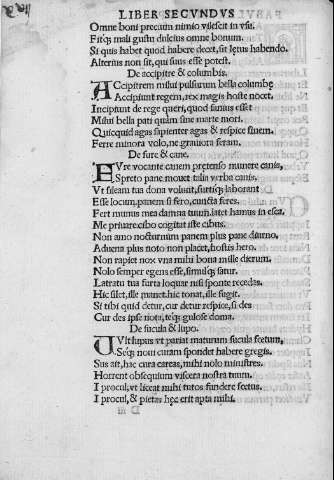 LIBER SECVNDVS
Omne boni precium nimio vilescit in vsu.
Fitq́; mali gustu dulcius omne bonum.
Si quis habet quod habere decet, sit lętus habendo.
Alterius non sit, qui suus esse potest.
De accipitre & columbis.
ACcipitrem milui pulsurum bella columbę
Accipiunt regem, rex magis hoste nocet.
Incipiunt de rege queri, quod sanius esset
Milui bella pati quàm sine marte mori.
Quicquid agas sapienter agas & respice finem.
Ferre minora volo, ne grauiora feram.
De fure & cane.
FVre vocante canem pretenso munere canis,
Spreto pane mouet talia verba canis.
Vt sileam tua dona volunt, furtisq́; laborant
Esse locum, panem si fero, cuncta feres.
Fert munus mea damna tuum. latet hamus in esca.
Me priuare cibo cogitat iste cibus.
Non amo nocturnum panem plus pane diurno,
Aduena plus noto non placet, hostis hero.
Non rapiet nox vna mihi bona mille dierum.
Nolo semper egens esse, simulq́; satur.
Latratu tua furta loquar nisi sponte recedas.
Hic silet, ille manet. hic tonat, ille fugit.
Si tibi quid detur, cur detur respice, si des
Cur des ipse nota, teq́; gulose doma.
De sucula & lupo.
VVlt lupus vt pariat maturum sucula foetum,
Seq́; noui curam spondet habere gregis.
Sus ait, hac cura careas, mihi nolo ministres.
Horrent obsequium viscera nostra tuum.
I procul, vt liceat mihi tutos fundere foetus.
I procul, & pietas hęc erit apta mihi.
D iii